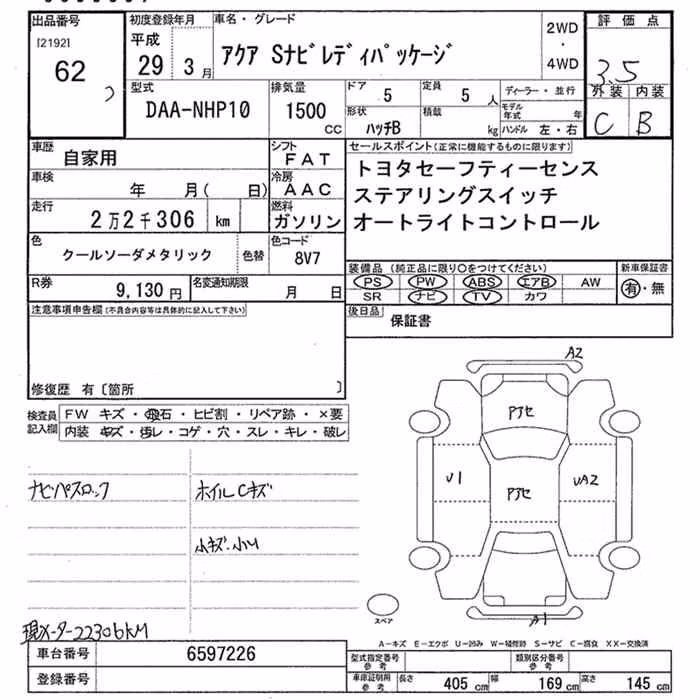 出品番号
[2192]
62
初度登録年月
平成
29 3月
車名・グレード
アクア Sナビレディパッケージ
2WD
・
4WD
評価点
3.5
外装 内装
C B
型式
DAA-NHP10
排気量
1500
CC
ドア
5
定員
5 人
形状
ハッチB
積載
kg
ディーラー・並行
モデル年式 年
ハンドル 左・右
車歴
自家用
シフト
FAT
車検
年 月( 日)
冷房
AAC
走行
2万2千306 km
燃料
ガソリン
色
クールソーダメタリック
色替
色コード
8V7
R券
9,130 円
名変通知期限
月 日
セールスポイント(正常に機能するものに限ります)
トヨタセーフティーセンス
ステアリングスイッチ
オートライトコントロール
装備品(純正品に限り○をつけてください)
PS PW ABS エアB AW
SR ナビ TV カワ
新車保証書
有・無
後日品
保証書
注意事項申告欄(不具合内容等は具体的に記入して下さい)
修復歴 有〔箇所 〕
検査員記入欄
FW キズ・飛石・ヒビ割・リペア跡・×要
内装 キズ・汚レ・コゲ・穴・スレ・キレ・破レ
ナビパスロック
ホイルCキズ
小キズ・小U
現メーター22306KM
A2
アアセ
U1
アアセ
UA2
A1
スペア
A-キズ E-エクボ U-凹み W-補修跡 S-サビ C-腐食 XX-交換済
車台番号
6597226
登録番号
型式指定番号
参考
類別区分番号
参考
車庫証明用
参考
長さ 405 cm 幅 169 cm 高さ 145 cm